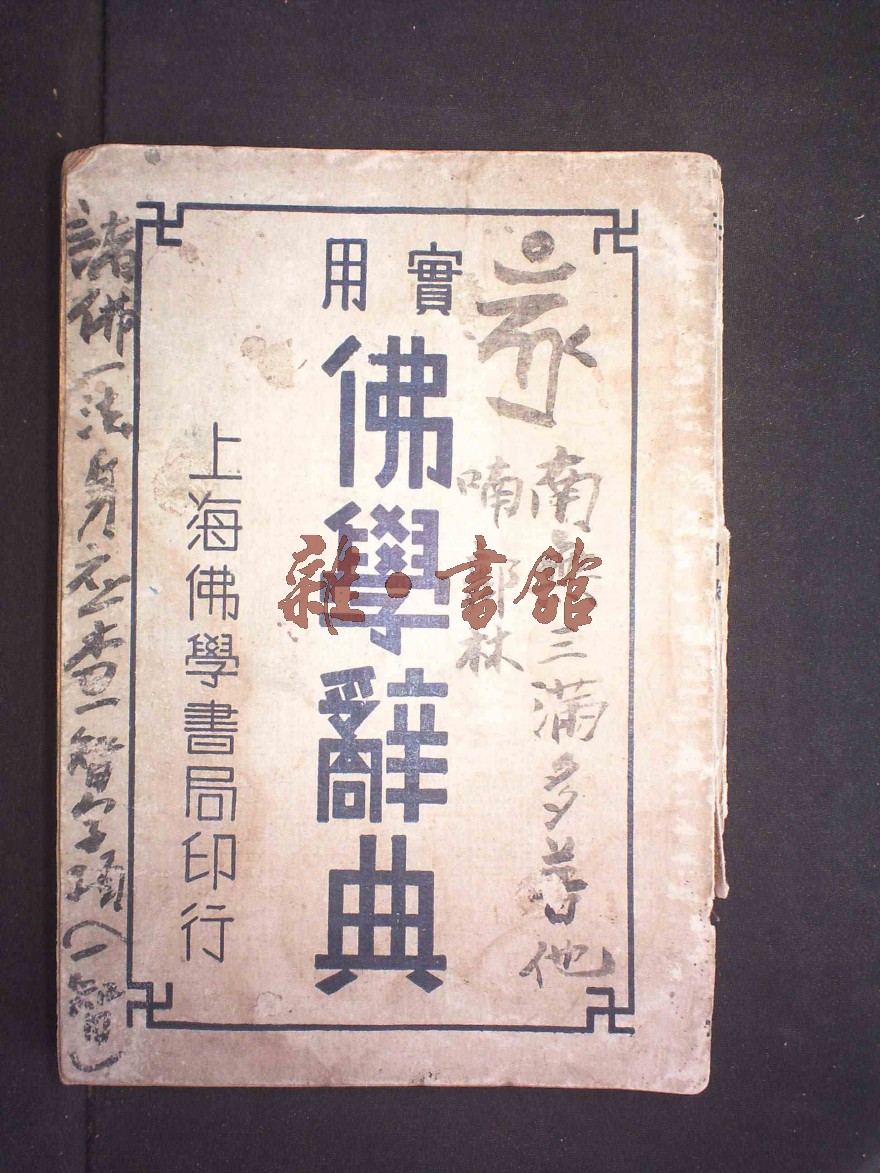 實用
佛學辭典
上海佛學書局印行
南無三滿多普他
喃部林
諸佛一法身應查一智字項(一智)
雜·書舘